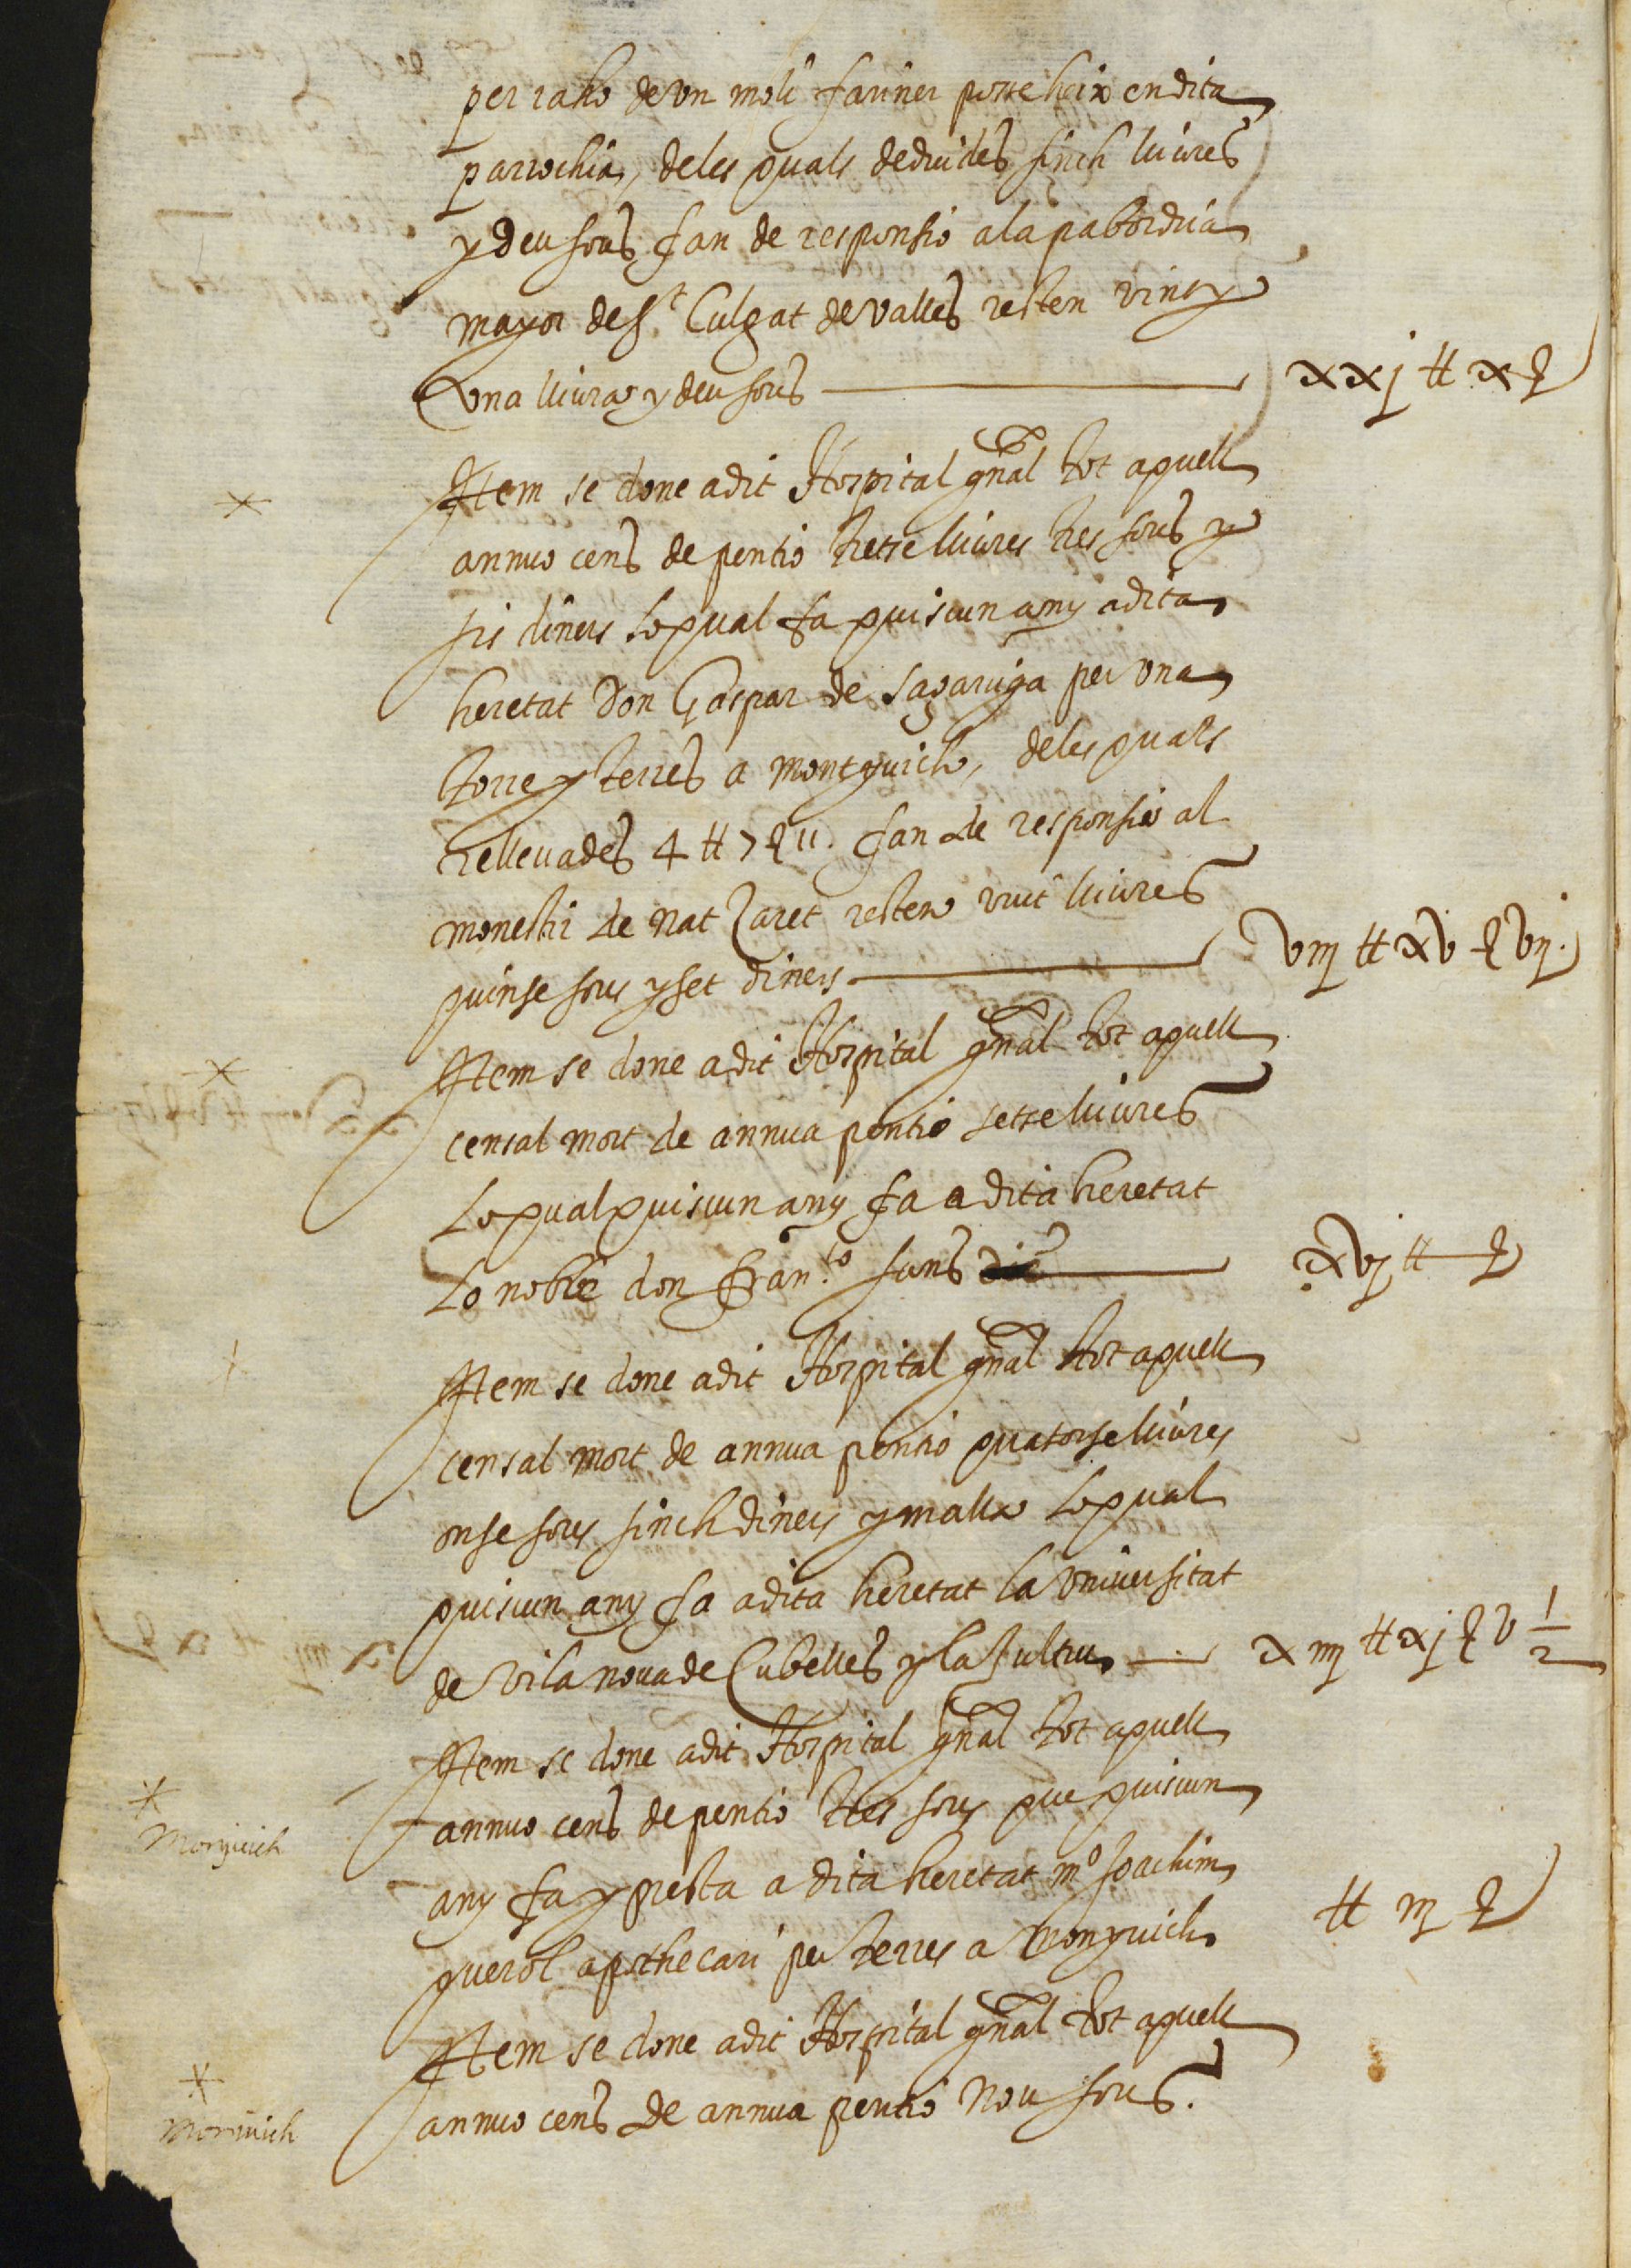 per raho de vn moli fariner posseheix en dita
parrochia, deles quals deduides sinch lliures
y deu sous fan de responsio ala pabordria
mayor de St. Culgat de valles resten vint y
vna lliura y deu sous xxj ℔ x ß
Item se done a dit Hospital gñal tot aquell
annuo cens de pentio tretse lliures tres sous y
sis diners lo qual fa quiscun any a dita
heretat Don Gaspar de sagarriga per vna
torre y terres a montyuich, deles quals
rellevades 4 ℔ 7 ß 11. fan de responsio al
monestir de natzaret resten vuit lliures
quinse sous y set diners viij ℔ xv ß vij.
Item se done a dit Hospital gñal tot aquell
censal mort de annua pentio setse lliures
Lo qual quiscun any fa a dita heretat
Lo noble don Franco. sans xvj ℔ ß
Item se done a dit Hospital gñal tot aquell
censal mort de annua pentio quatorse lliures
onse sous sinch diners y malla lo qual
quiscun any fa a dita heretat la vniversitat
de vilanova de Cubelles y la Jultru xiiij ℔ xj ß v 1/2
Item se done a dit Hospital gñal tot aquell
annuo cens de pentio tres sous que quiscun
Monjuich
any fa y presta a dita heretat mo Joachim
querol apothecari per terres a monyuich ℔ iij ß
Item se done a dit Hospital gñal tot aquell
annuo cens de annua pentio nou sous.
Monjuich